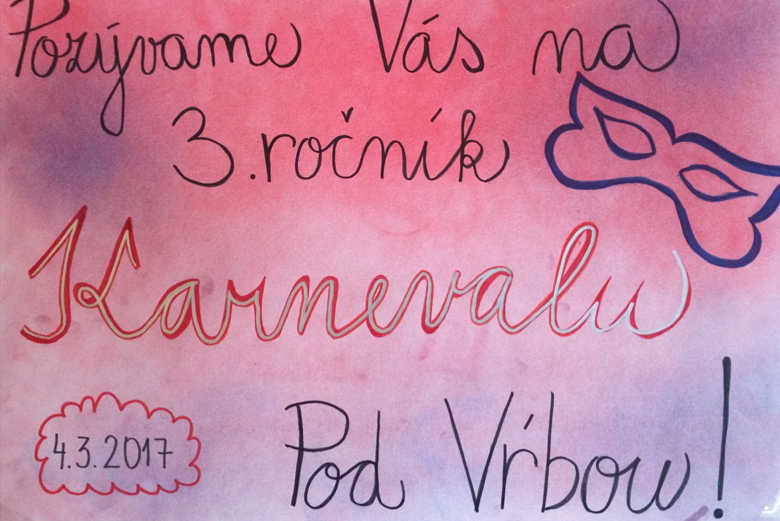 Pozývame Vás na
3. ročník
Karnevalu
4.3.2017
Pod Vŕbou!